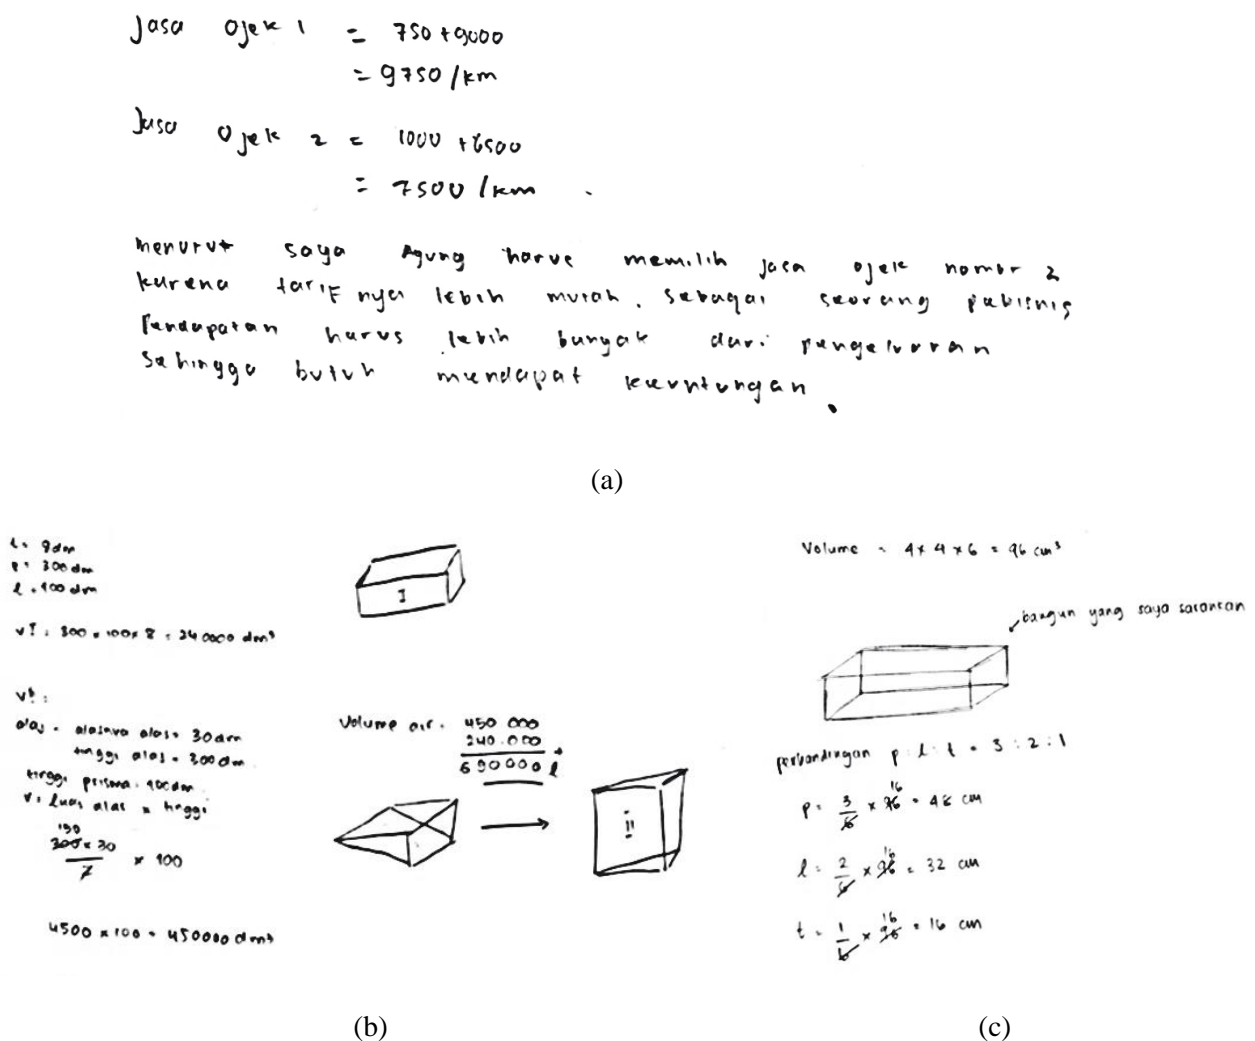 Jasa ojek 1 = 750 + 9000
= 9750 /km
Jasa ojek 2 = 1000 + 6500
= 7500 /km
menurut saya Agung harus memilih jasa ojek nomor 2
karena tarif nya lebih murah. sebagai seorang pebisnis
Pendapatan harus lebih banyak dari pengeluaran
Sehingga butuh mendapat keuntungan.
(a)
p: 300 dm
VI: 300 × 100 × 8 = 240000 dm³
I
alas = alasnya alas = 30 dm
tinggi alas = 300 dm
tinggi prisma: 100 dm
V: luas alas × tinggi
150
300 × 30
× 100
4500 × 100 = 450000 dm³
Volume air = 450 000
240.000 +
690000 l
II
(b)
Volume = 4 × 4 × 6 = 96 cm³
bangun yang saya sarankan
perbandingan p : l : t = 3 : 2 : 1
p = 3/6 × 96 16 = 48 cm
l = 2/6 × 96 16 = 32 cm
t = 1/6 × 96 16 = 16 cm
(c)